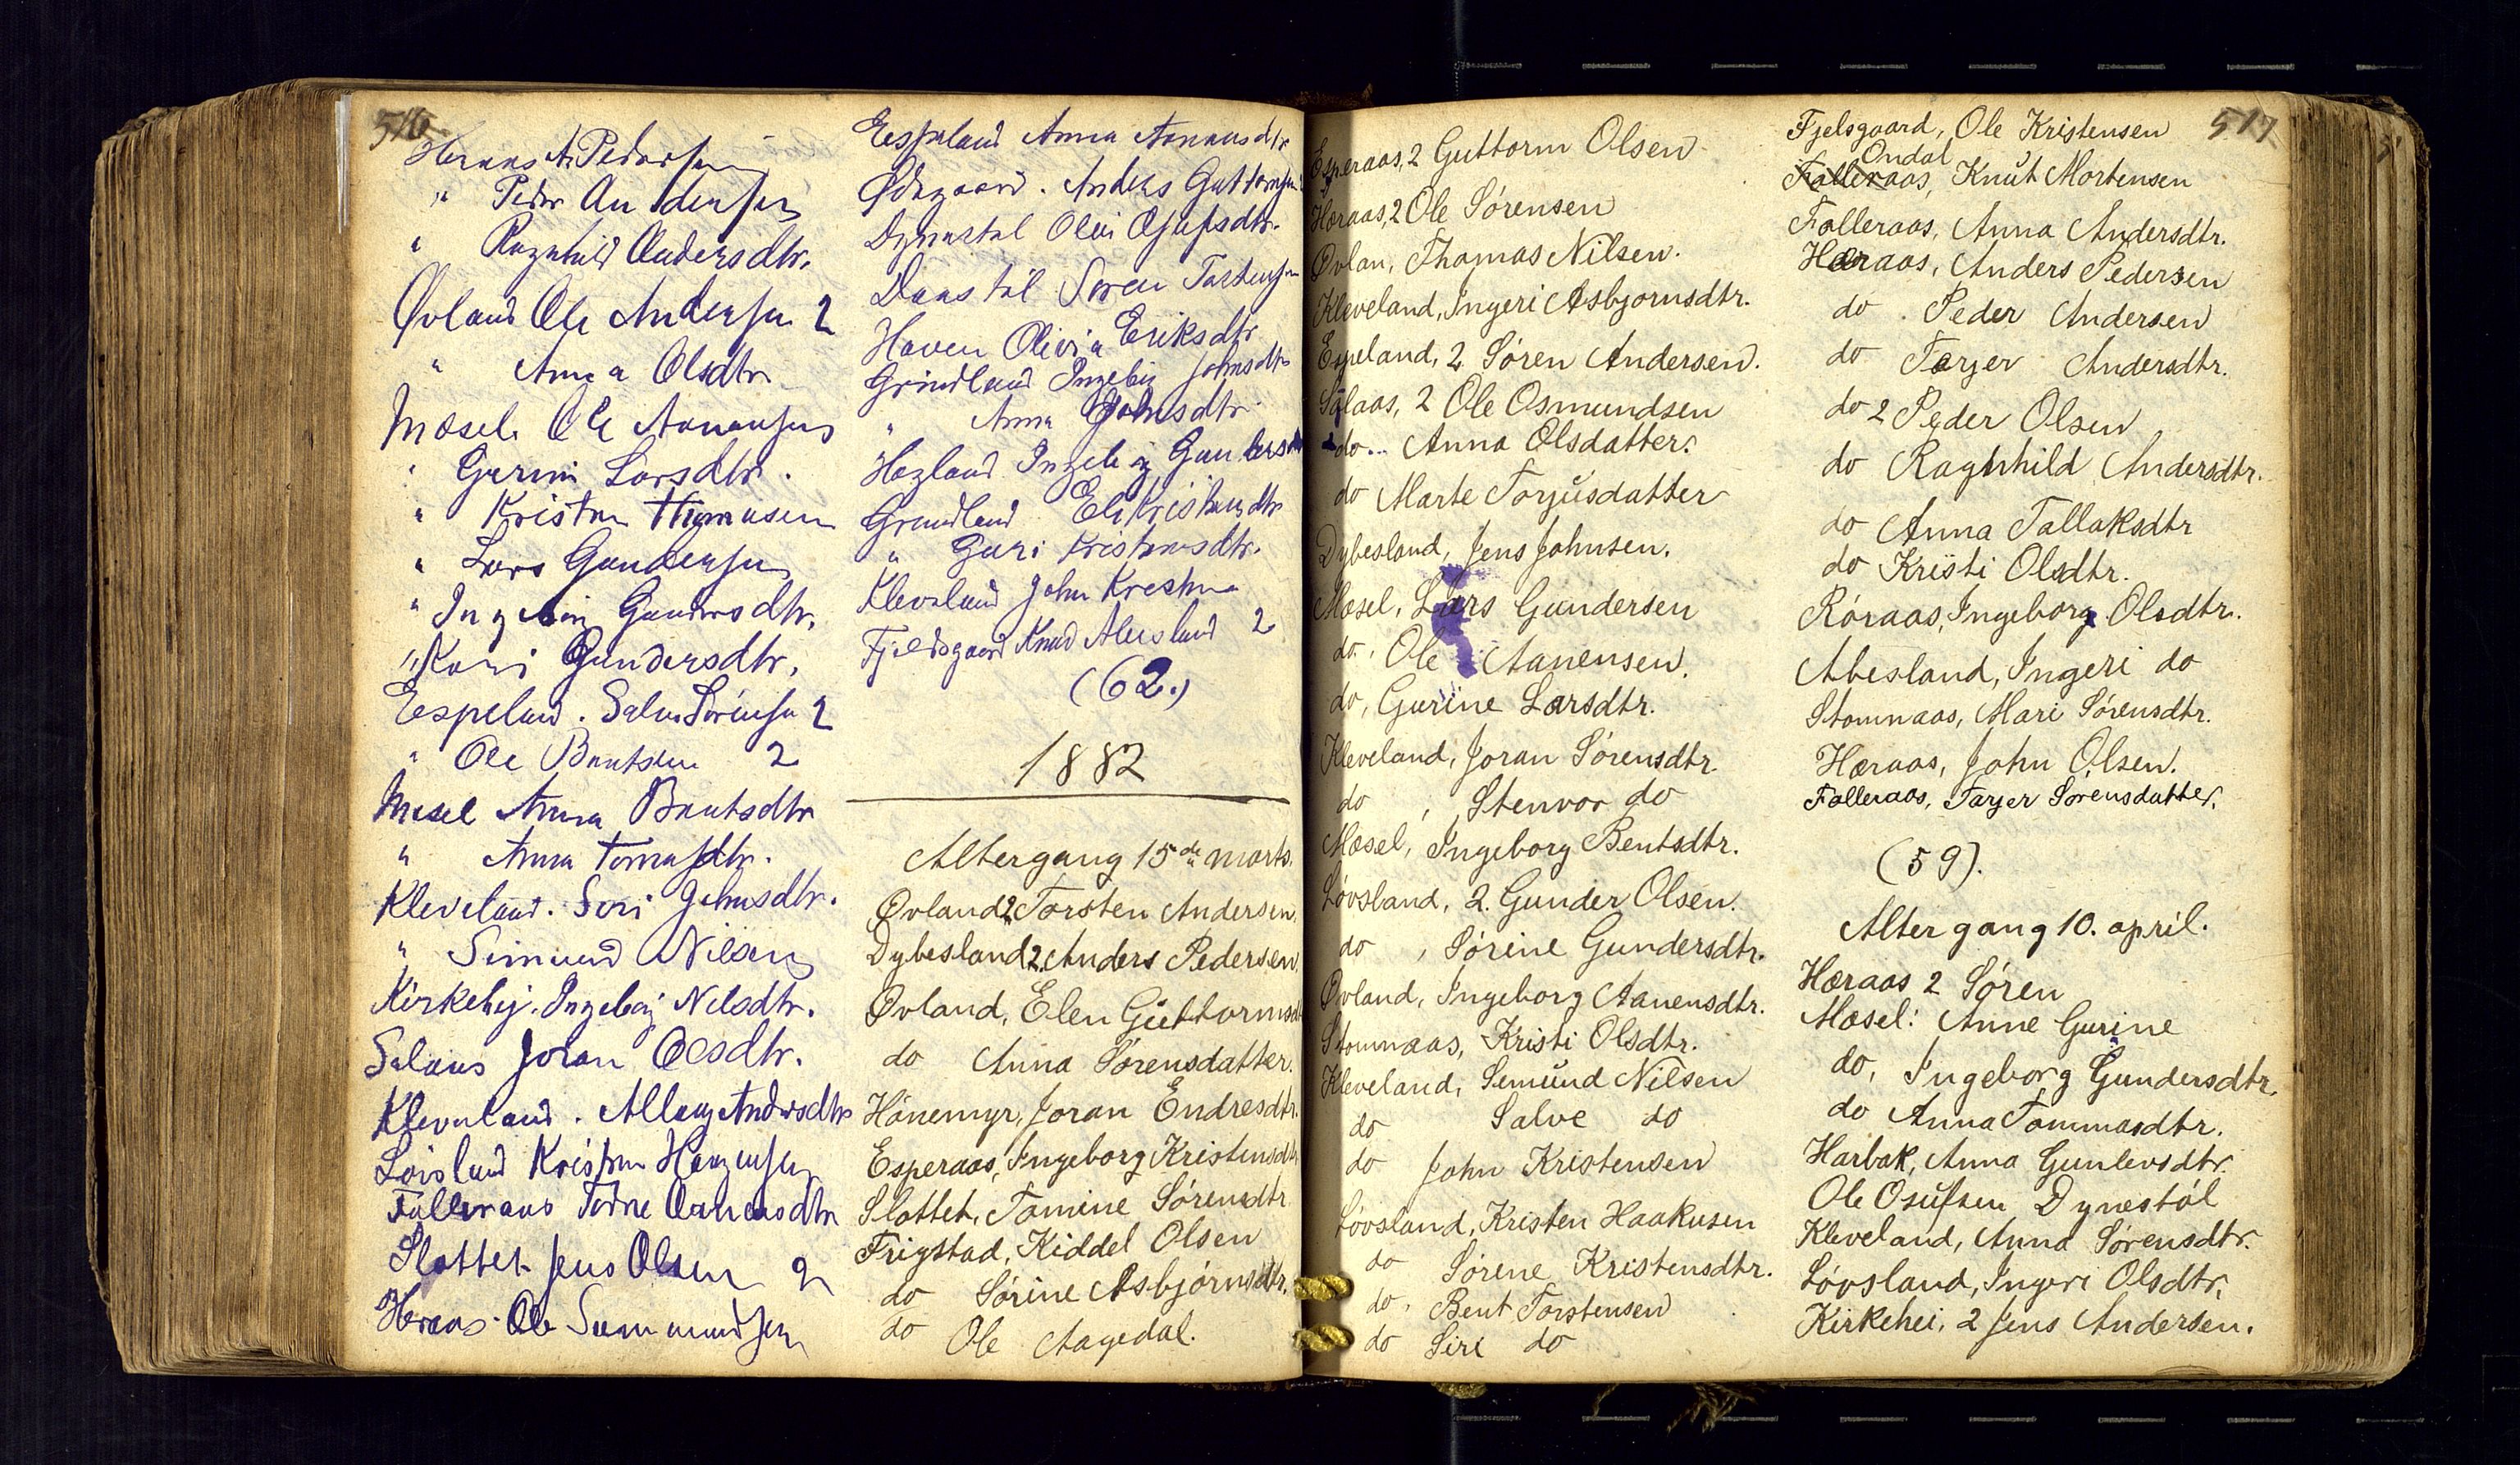 516
Heraas A. Pedersen
" Peder Andersen
" Ragnhild Andersdtr.
Øvland Ole Andersen 2
" Anna Olsdtr
Mosel. Ole Aanensen
" Gurine Larsdtr.
" Kristen Thomasen
" Lars Gundersen
" Ingebor Gundersdtr.
" Kari Gundersdtr.
Eespeland. Salve Sørensen 2
" Ole Bentsen 2
Mosel Anna Bentsdtr
" Anna Tomasdtr.
Kleveland. Seri Johnsdtr.
" Simund Nilsen
Kirkehej. Ingeborg Nilsdtr.
Salaas Joran Olsdtr.
Kleveland. Andersdtr
Løvsland Kristen
Falleraas Aanensdtr
Slottet Jens Olsen 2
Heraas. Ole
Eespeland Anna Aanensdtr
Ødegaard. Anders Guttormsen
Dynestøl Olevi
Daastøl Søren Tarstensen
Haven Olivia Eriksdtr
Grindland Ingeborg Johnsdtr
" Anna Johnsdtr
Hægland Ingeborg Gundersdtr
Grundland Eli Kristensdtr
" Guri Kristensdtr.
Kleveland John Kresten
Fjeldsgaard Knud Abesland 2
(62.)
1882
Altergang 15de marts.
Øvland 2 Torsten Andersen.
Dybesland 2. Anders Pedersen.
Øvland, Elen Guttormsd
do Anna Sørensdatter.
Hönemyr, Joran Endresdtr.
Esperaas, Ingeborg Kristensdtr
Slottet, Tomine Sörensdtr
Frigstad, Kiddel Olsen
do Sörine Asbjörnsdtr.
do Ole Aagedal.
Esperaas, 2 Guttorm Olsen
Hæraas, 2 Ole Sörensen
Øvlan, Thomas Nilsen.
Kleveland, Ingeri Asbjornsdtr.
Espeland, 2 Sören Andersen.
Salaas, 2 Ole Osmundsen
do.. Anna Olsdatter.
do Marte Torjusdatter
Dybesland, Jens Johnsen.
Mosel, Lars Gundersen
do, Ole Aanensen.
do, Gurine Larsdtr.
Kleveland, Joran Sörensdtr.
do, Stenvor do
Mosel, Ingeborg Bentsdtr.
Lövsland, 2. Gunder Olsen.
do, Sörine Gundersdtr.
Øvland, Ingeborg Aanensdtr.
Stomnaas, Kristi Olsdtr.
Kleveland, Semund Nilsen
do Salve do
do John Kristensen
Lövsland, Kristen Haakusen
do Sörene Kristensdtr.
do, Bent Torstensen
do Siri do
517
Fjelsgaard, Ole Kristensen
Ondal
Falleraas, Knut Mortensen
Falleraas, Anna Andersdtr.
Hæraas, Anders Pedersen
do. Peder Andersen
do Tarjer Andersdtr.
do 2 Peder Olsen
do Ragnhild Andersdtr.
do Anna Tallaksdtr
do Kristi Olsdtr.
Röraas, Ingeborg Olsdtr.
Abesland, Ingeri do
Stomnaas, Mari Sörensdtr.
Hæraas, John Olsen.
Falleraas, Tarjer Sörensdatter.
(59).
Altergang 10. april.
Hæraas 2 Sören
Mosel: Anne Gurine
do, Ingeborg Gundersdtr.
do Anna Tommasdtr.
Harbak, Anna Gunlevsdtr.
Ole Osufsen Dynestöl
Kleveland, Anna Sörensdtr.
Lövsland, Ingeri Olsdtr.
Kirkehei, 2 Jens Andersen.